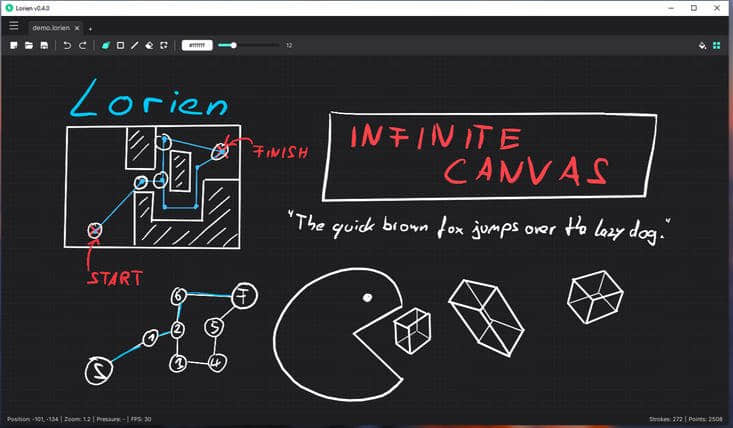 Lorien v0.4.0
demo.lorien × +
#ffffff 12
Lorien
INFINITE
CANVAS
FINISH
"The quick brown fox jumps over the lazy dog."
START
6 7
1 2 5
3 4
S
Position: -101, -134 | Zoom: 1.2 | Pressure: - | FPS: 30
Strokes: 272 | Points: 2508